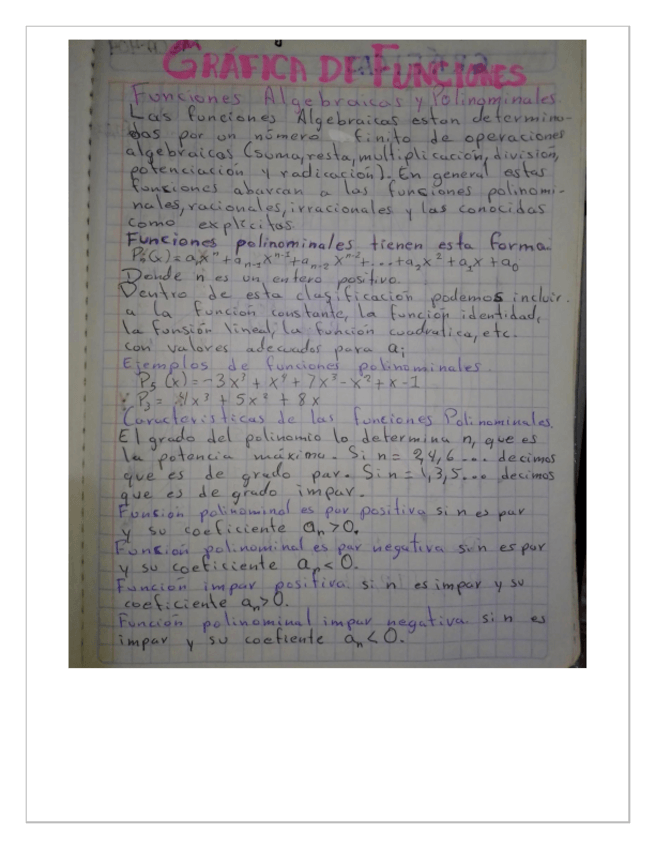 GRÁFICA DE FUNCIONES
Funciones Algebraicas y Polinominales
Las funciones Algebraicas estan determina-
das por un número finito de operaciones
algebraicas (suma, resta, multiplicación, división,
potenciación y radicación). En general estas
funsiones abarcan a las funsiones polinomi-
nales, racionales, irracionales y las conocidas
como explicitas.
Funsiones polinominales tienen esta forma:
(x) = aₙxⁿ + aₙ₋₁xⁿ⁻¹ + aₙ₋₂xⁿ⁻² + ... + a₂x² + a₁x + a₀
Donde n es un entero positivo.
Dentro de esta clasificación podemos incluir
a la función constante, la función identidad,
la funsión lineal, la función cuadratica, etc.
con valores adecuados para aᵢ
Ejemplos de funsiones polinominales.
P₅ (x) = -3x + x + 7x - x² + x - 1
P₃ = x³ + 5x² + 8x
Caracteristicas de las funsiones Polinominales.
El grado del polinomio lo determina n, que es
la potencia máxima. Si n = 2,4,6... decimos
que es de grado par. Si n = 1,3,5... decimos
que es de grado impar.
Funsión polinominal es par positiva si n es par
y su coeficiente aₙ > 0.
Funsión polinominal es par negativa si n es par
y su coeficiente aₙ < 0.
Función impar positiva si n es impar y su
coeficiente aₙ > 0.
Función polinominal impar negativa si n es
impar y su coefiente aₙ < 0.